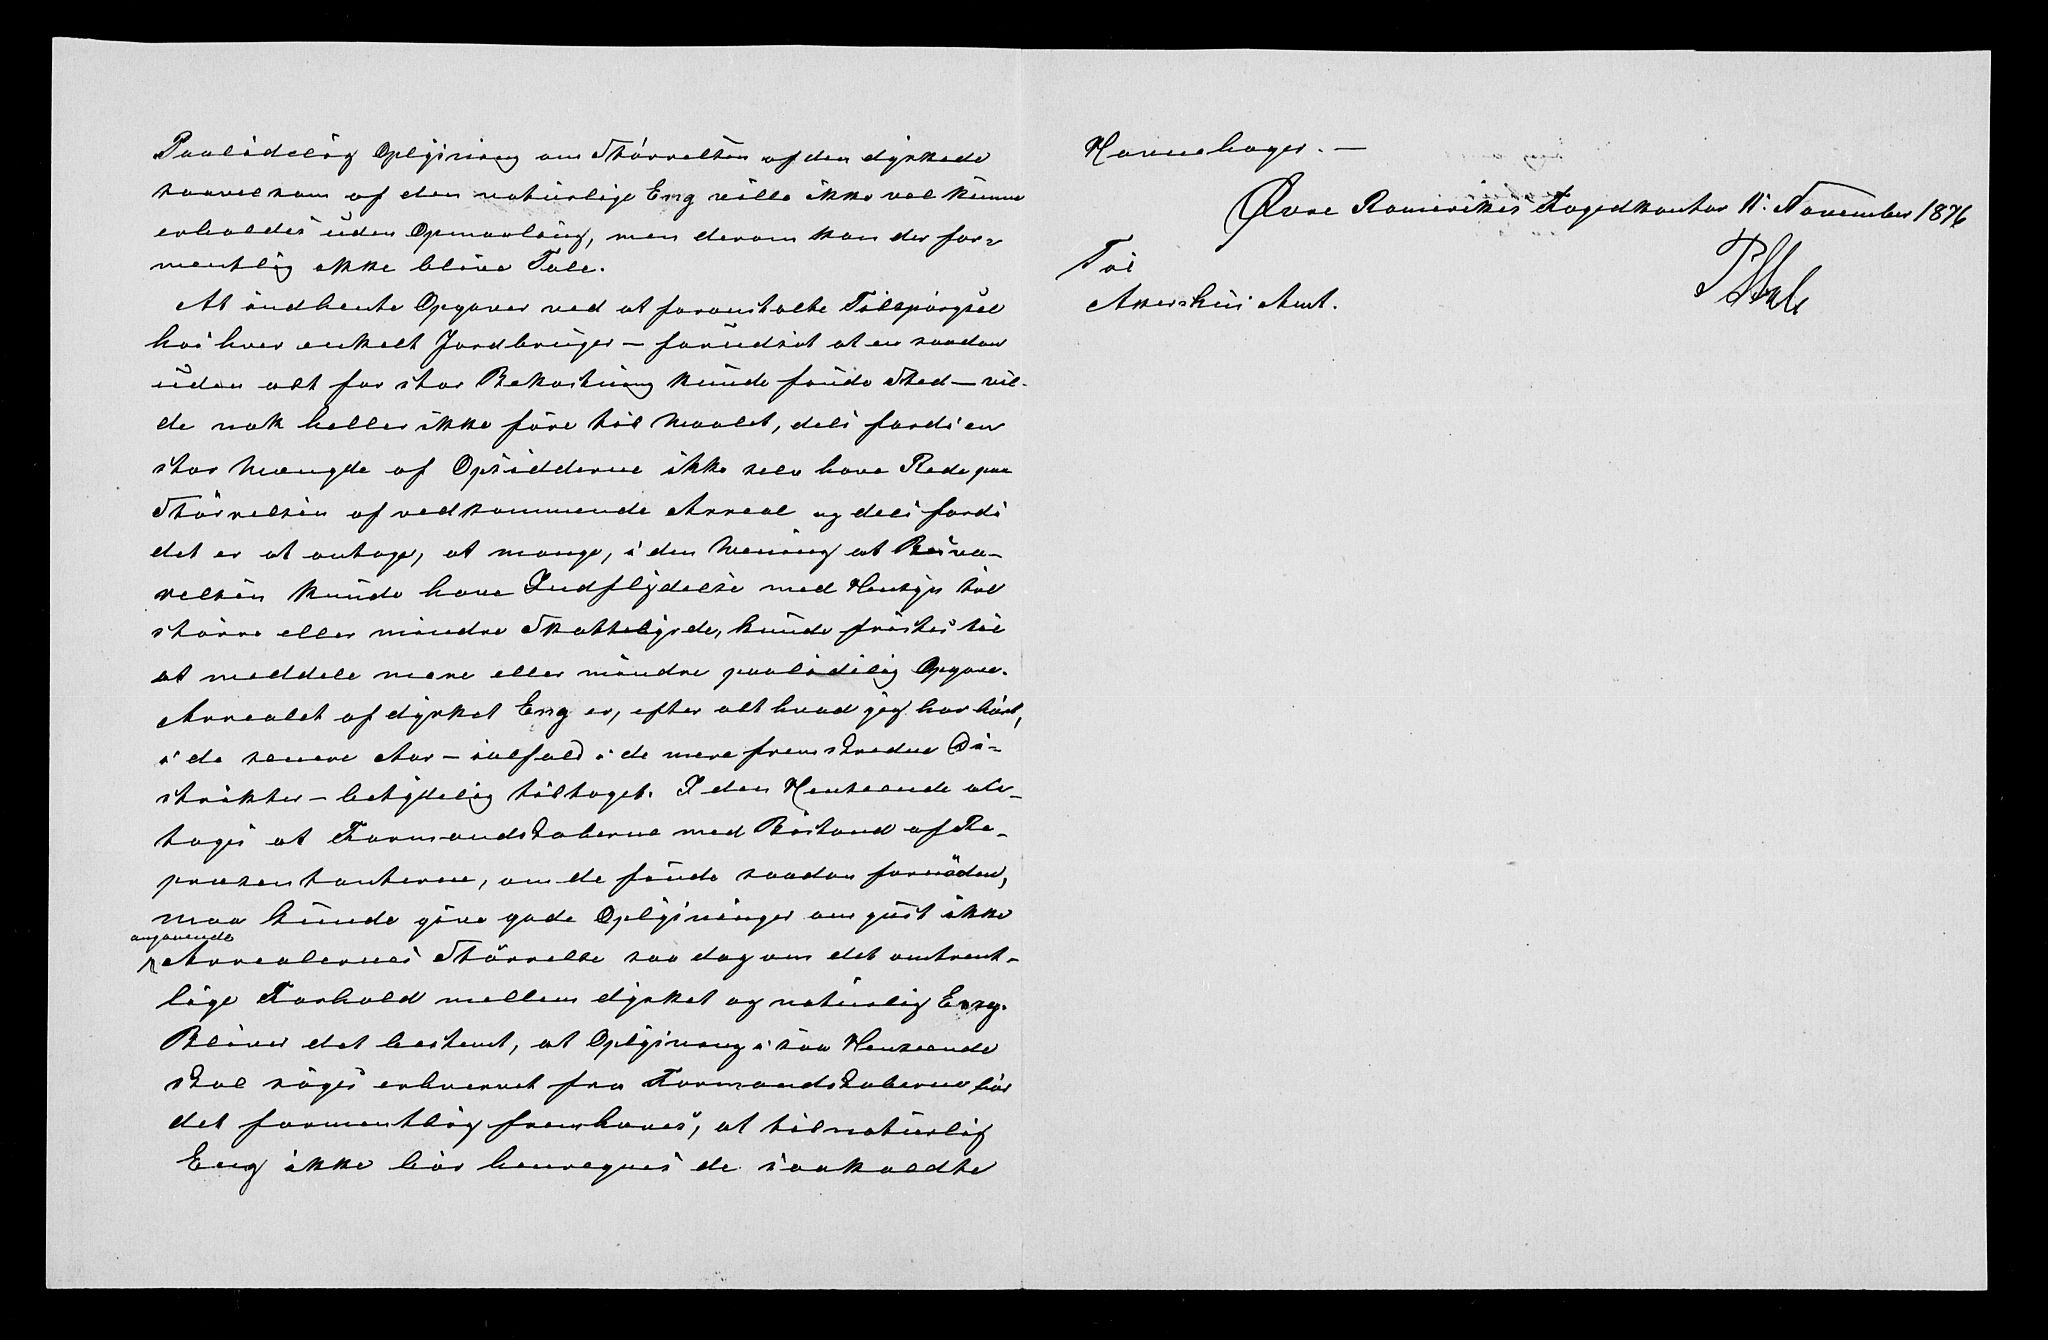 Paalidelig Oplysning om Størrelsen af den dyrkede
saavelsom af den naturlige Eng vilde ikke vel kunne
erholdes uden Opmaaling, men derom kan der for-
mentlig ikke blive Tale.
At indhente Opgaver ved at foranstalte Tilspørgsel
hos hver enkelt Jordbruger – forudsat at en saadan
uden alt for stor Bekostning kunde finde Sted – vil-
de nok heller ikke føre til Maalet, dels fordi en
stor Mængde af Opsidderne ikke selv have Rede paa
Størrelsen af vedkommende Arreal og dels fordi
det er at antage, at mange, i den Mening at Besva-
relsen kunde have Indflydelse med Hensyn til
større eller mindre Skattebyrde, kunde fristes til
at meddele mere eller mindre paalidelig Opgave.
Arrealet af dyrket Eng er, efter alt hvad jeg har hørt,
i de senere Aar – ialfald i de mere fremskredne Di-
strikter – betydelig tiltaget. I den Henseende an-
tages at Formandskaberne med Bistand af Re-
præsentanterne, om de finde saadan fornøden,
maa kunde give gode Oplysninger om just ikke
angaaende
Arrealernes Størrelse saa dog om det omtrent-
lige Forhold mellem dyrket og naturlig Eng.
Bliver det bestemt, at Oplysning i saa Henseende
skal søges erhvervet fra Formandskaberne bør
det formentlig fremhæves, at til naturlig
Eng ikke bør henregnes de saakaldte
Havnehager. –
Øvre Romerikes Fogedkontor 11. November 1876
Til
Akershus Amt.